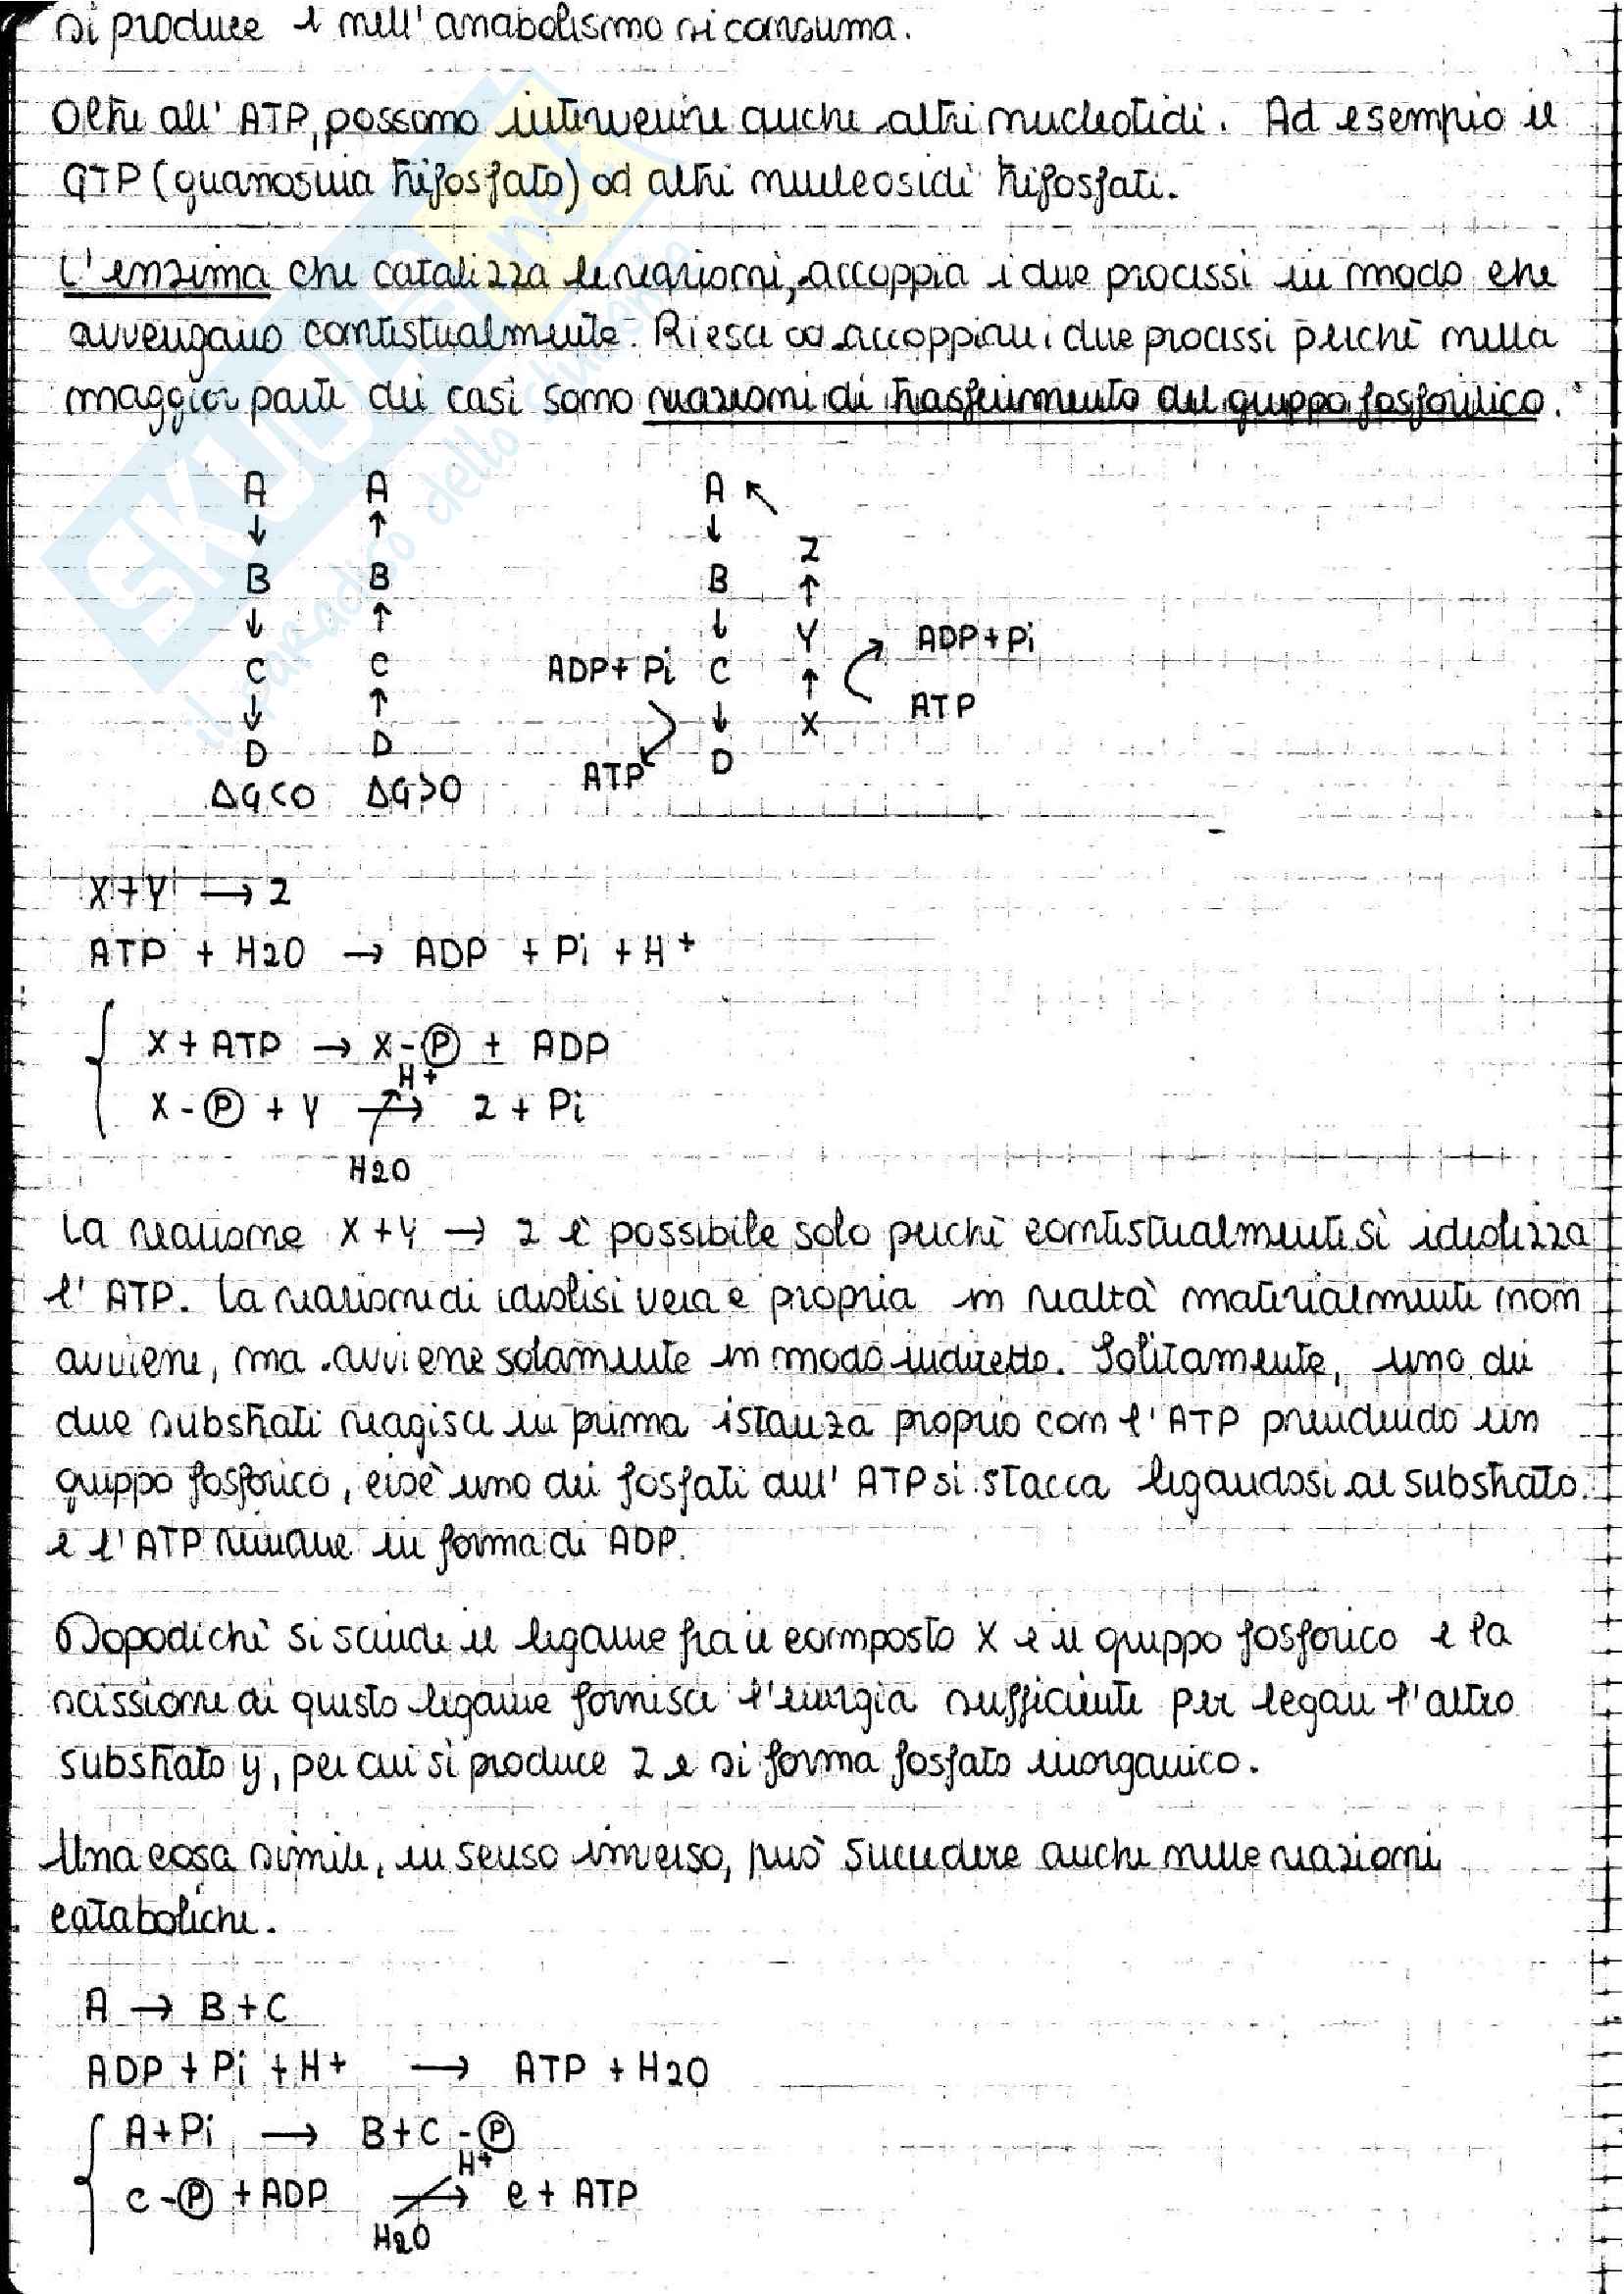 si produce e nell'anabolismo si consuma.
Oltre all'ATP, possono intervenire anche altri nucleotidi. Ad esempio il
GTP (guanosina trifosfato) od altri nucleosidi trifosfati.
L'enzima che catalizza le reazioni, accoppia i due processi in modo che
avvengano contestualmente. Riesce ad accoppiare i due processi perché nella
maggior parte dei casi sono reazioni di trasferimento del gruppo fosforilico.
A A A
↓ ↑ ↓ Z
B B B ↑
↓ ↑ ↓ Y ADP+Pi
C C ADP+Pi C ↑
↓ ↑ ↓ X ATP
D D ATP D
ΔG<0 ΔG>0
X+Y → Z
ATP + H2O → ADP + Pi + H+
X + ATP → X-P + ADP
H+
X-P + Y → Z + Pi
H2O
La reazione X+Y → Z è possibile solo perché contestualmente si idrolizza
l'ATP. La reazione di idrolisi vera e propria in realtà materialmente non
avviene, ma avviene solamente in modo indiretto. Solitamente, uno dei
due substrati reagisce in prima istanza proprio con l'ATP prendendo un
gruppo fosforico, cioè uno dei fosfati dell'ATP si stacca legandosi al substrato
e l'ATP rimane in forma di ADP.
Dopodiché si scinde il legame fra il composto X e il gruppo fosforico e la
scissione di questo legame fornisce l'energia sufficiente per legare l'altro
substrato y, per cui si produce Z e si forma fosfato inorganico.
Una cosa simile, in senso inverso, può succedere anche nelle reazioni
cataboliche.
A → B+C
ADP + Pi + H+ → ATP + H2O
A+Pi → B+C-P
H+
C-P + ADP → C + ATP
H2O
SKUOLA.net
il paradiso dello studente